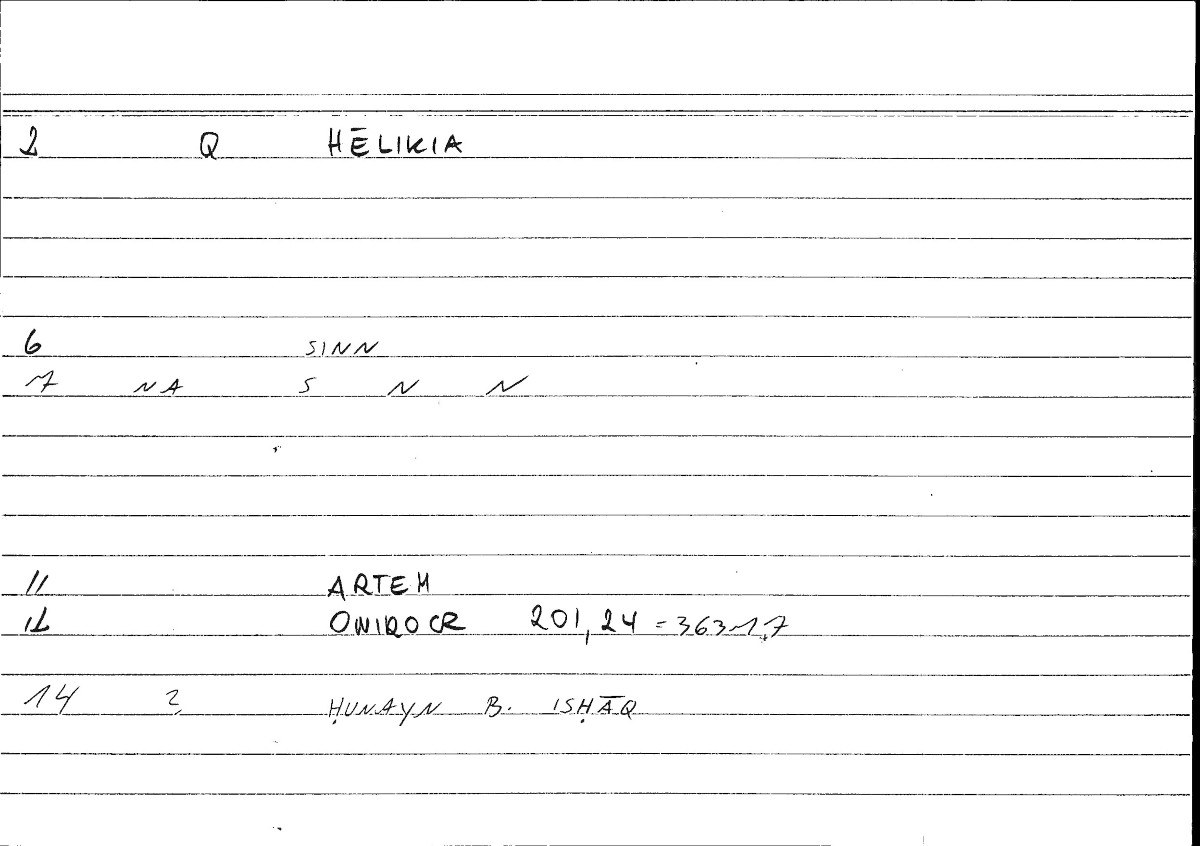 2 Q HĒLIKIA
6 SINN
7 NA S N N
11 ARTEM
12 ONIROCR 201,24 =
14 2 ḤUNAYN B. ISḤĀQ